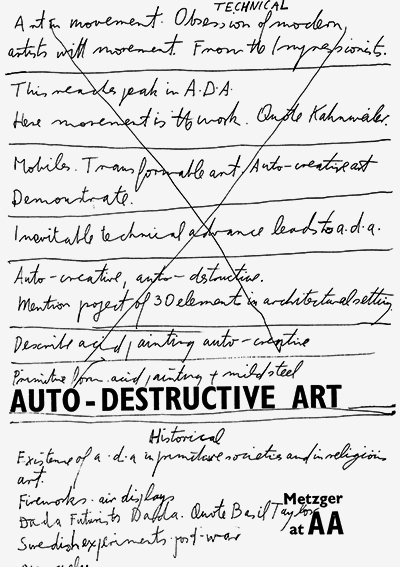 TECHNICAL
Art in movement. Obsession of modern,
artists with movement. From the Impressionists.
This reaches peak in A.D.A.
Here movement is the work. Quote Kahnweiler.
Mobiles. Transformable art, Auto-creative art
Demonstrate.
Inevitable technical advance leads to a.d.a.
Auto-creative, auto-destructive.
Mention project of 30 element in architectural setting
Describe acid painting auto-creative
Primitive form. acid painting + mild steel
AUTO-DESTRUCTIVE ART
Historical
Existence of a.d.a in primitive societies and in religious
art.
Fireworks. air displays
Dada Futurists Dadda. Quote Basil Taylor
Swedish experiments post-war
Metzger
at AA